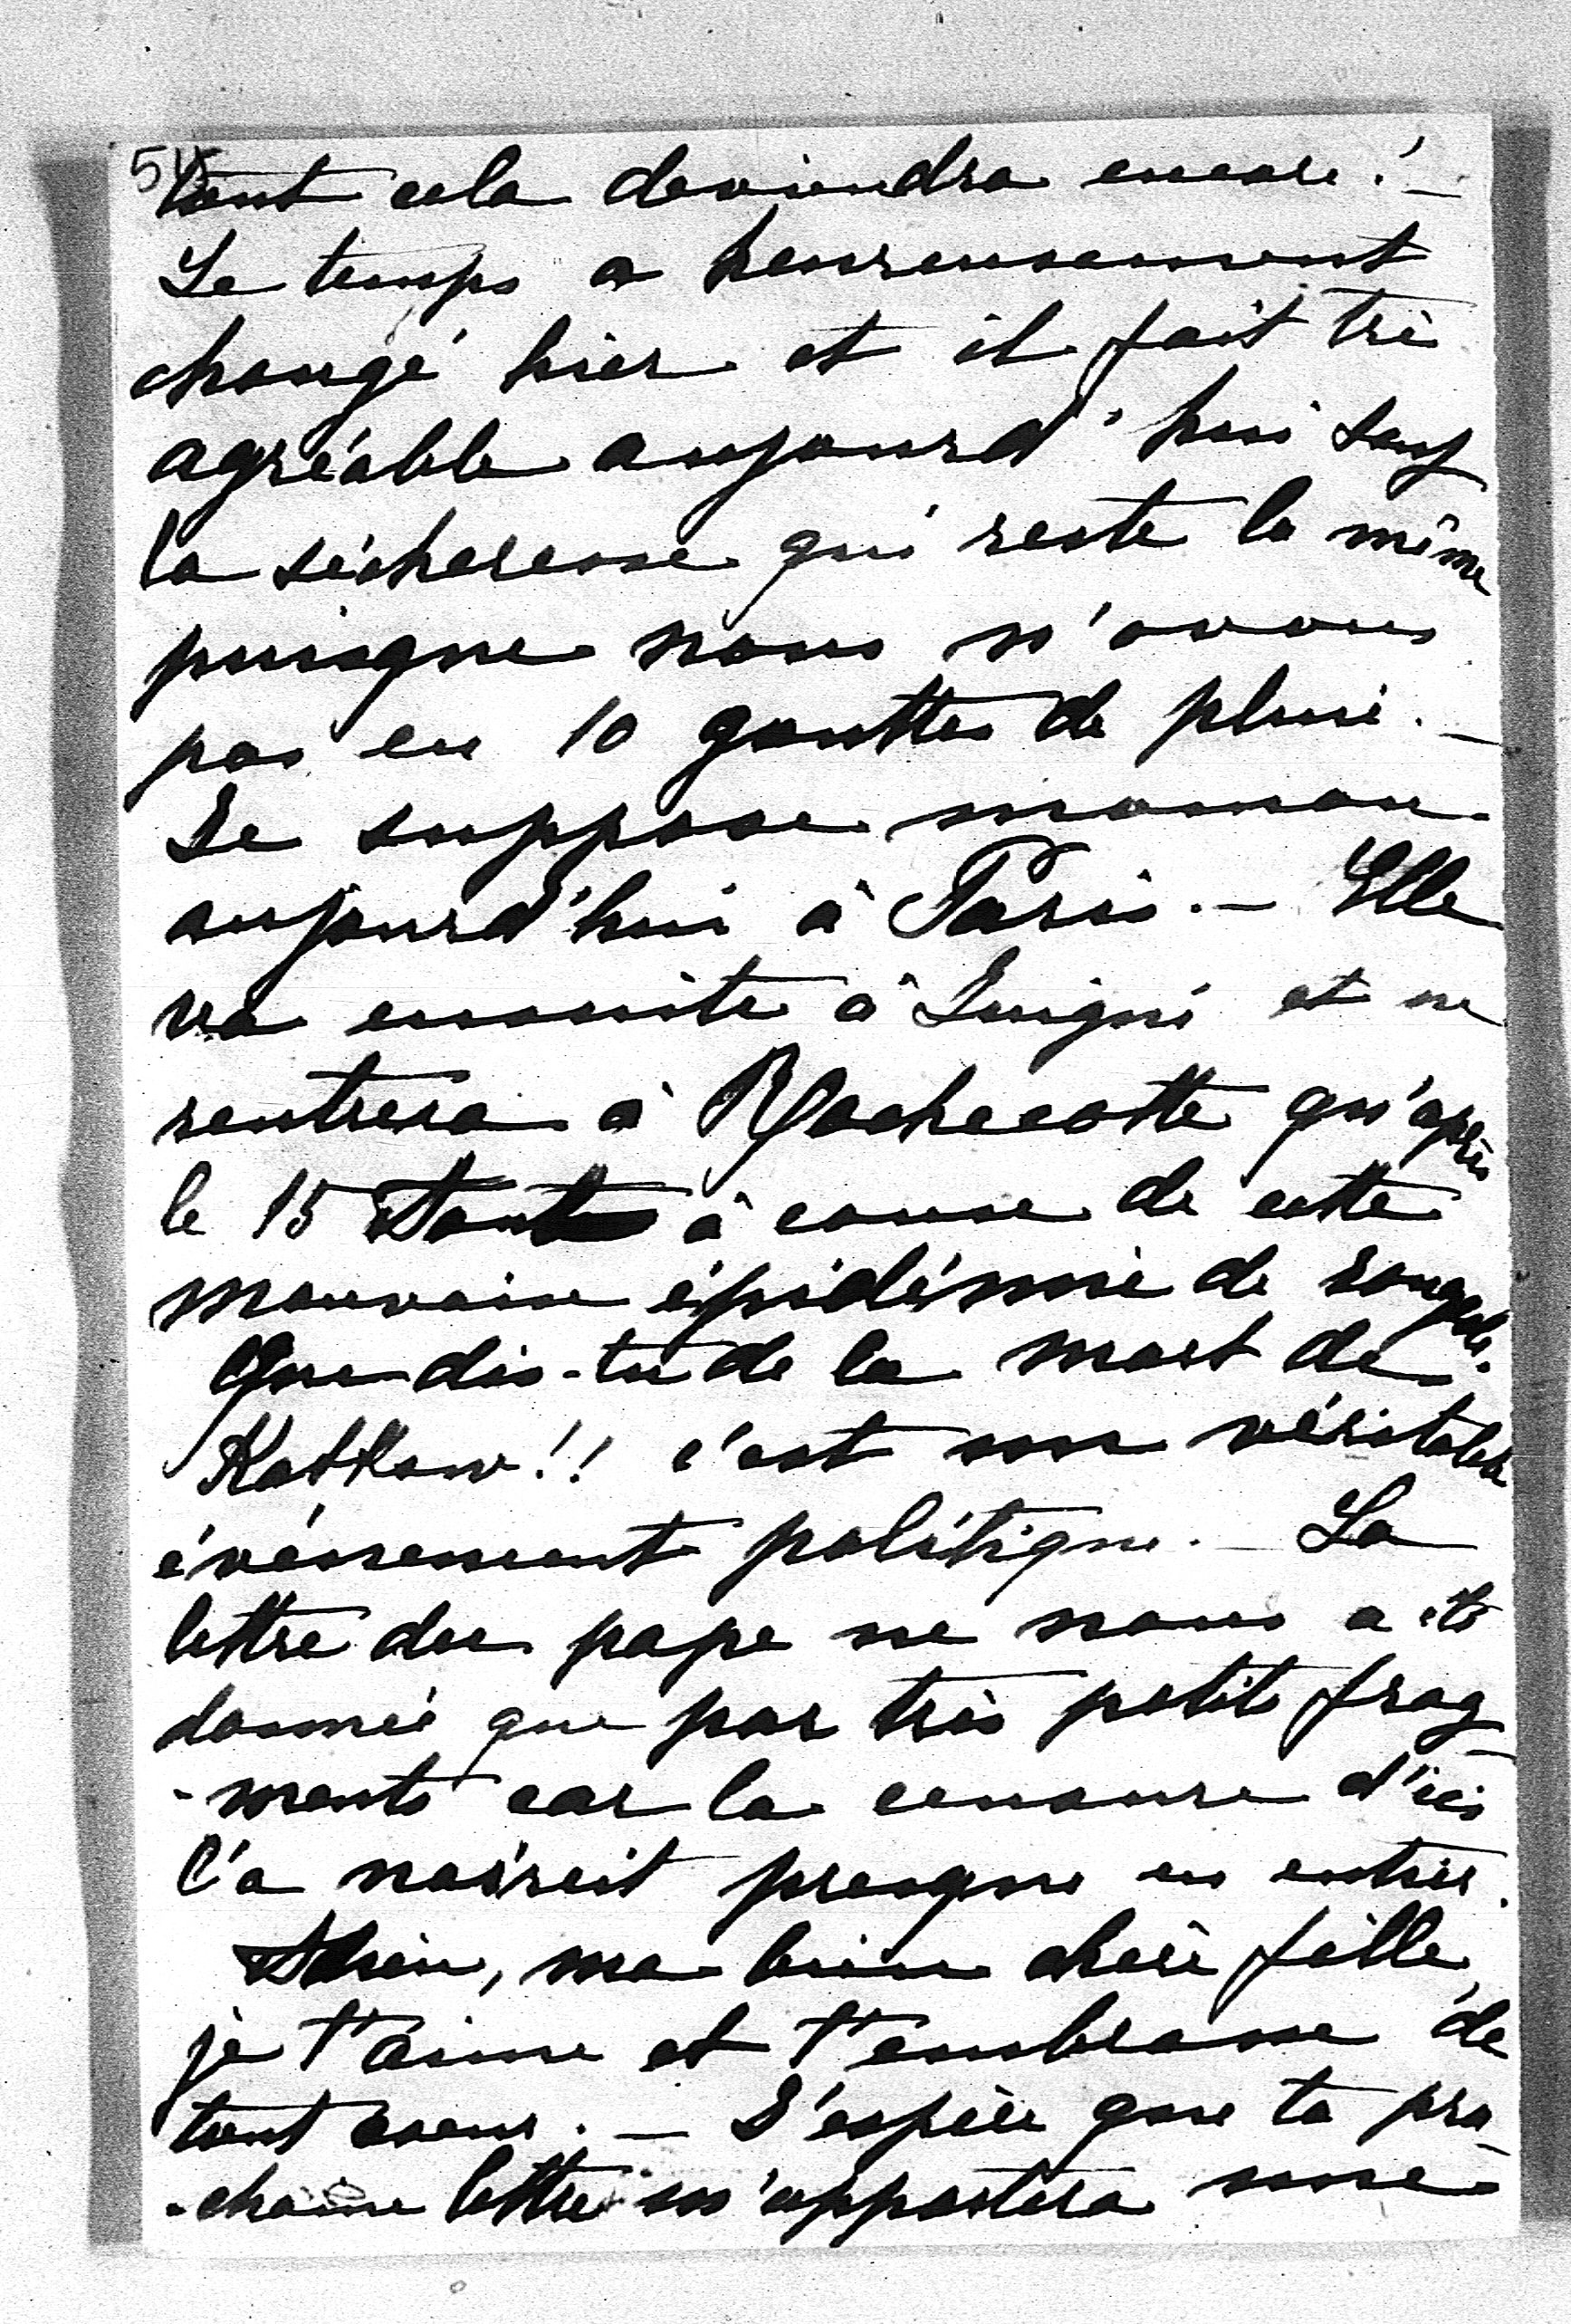 tout cela deviendra encore! —
Le temps a heureusement
changé hier et il fait très
agréable aujourd'hui sauf
la sécheresse qui reste la même
puisque nous n'avons
pas eu 10 gouttes de pluie. —
Je suppose maman
aujourd'hui à Paris. — Elle
va ensuite à Luigné et ne
rentrera à Rochecotte qu'après
le 15 Août à cause de cette
mauvaise épidémie de rougeole.
Que dis-tu de la mort de
Katkow!! c'est un véritable
événement politique. — La
lettre du pape ne nous a été
donnée que par très petits frag
-ments car la censure d'ici
l'a noircit presque en entier.
Adieu, ma bien chère fille,
je t'aime et t'embrasse de
tout coeur. — J'espère que ta pro
-chaine lettre m'apportera une